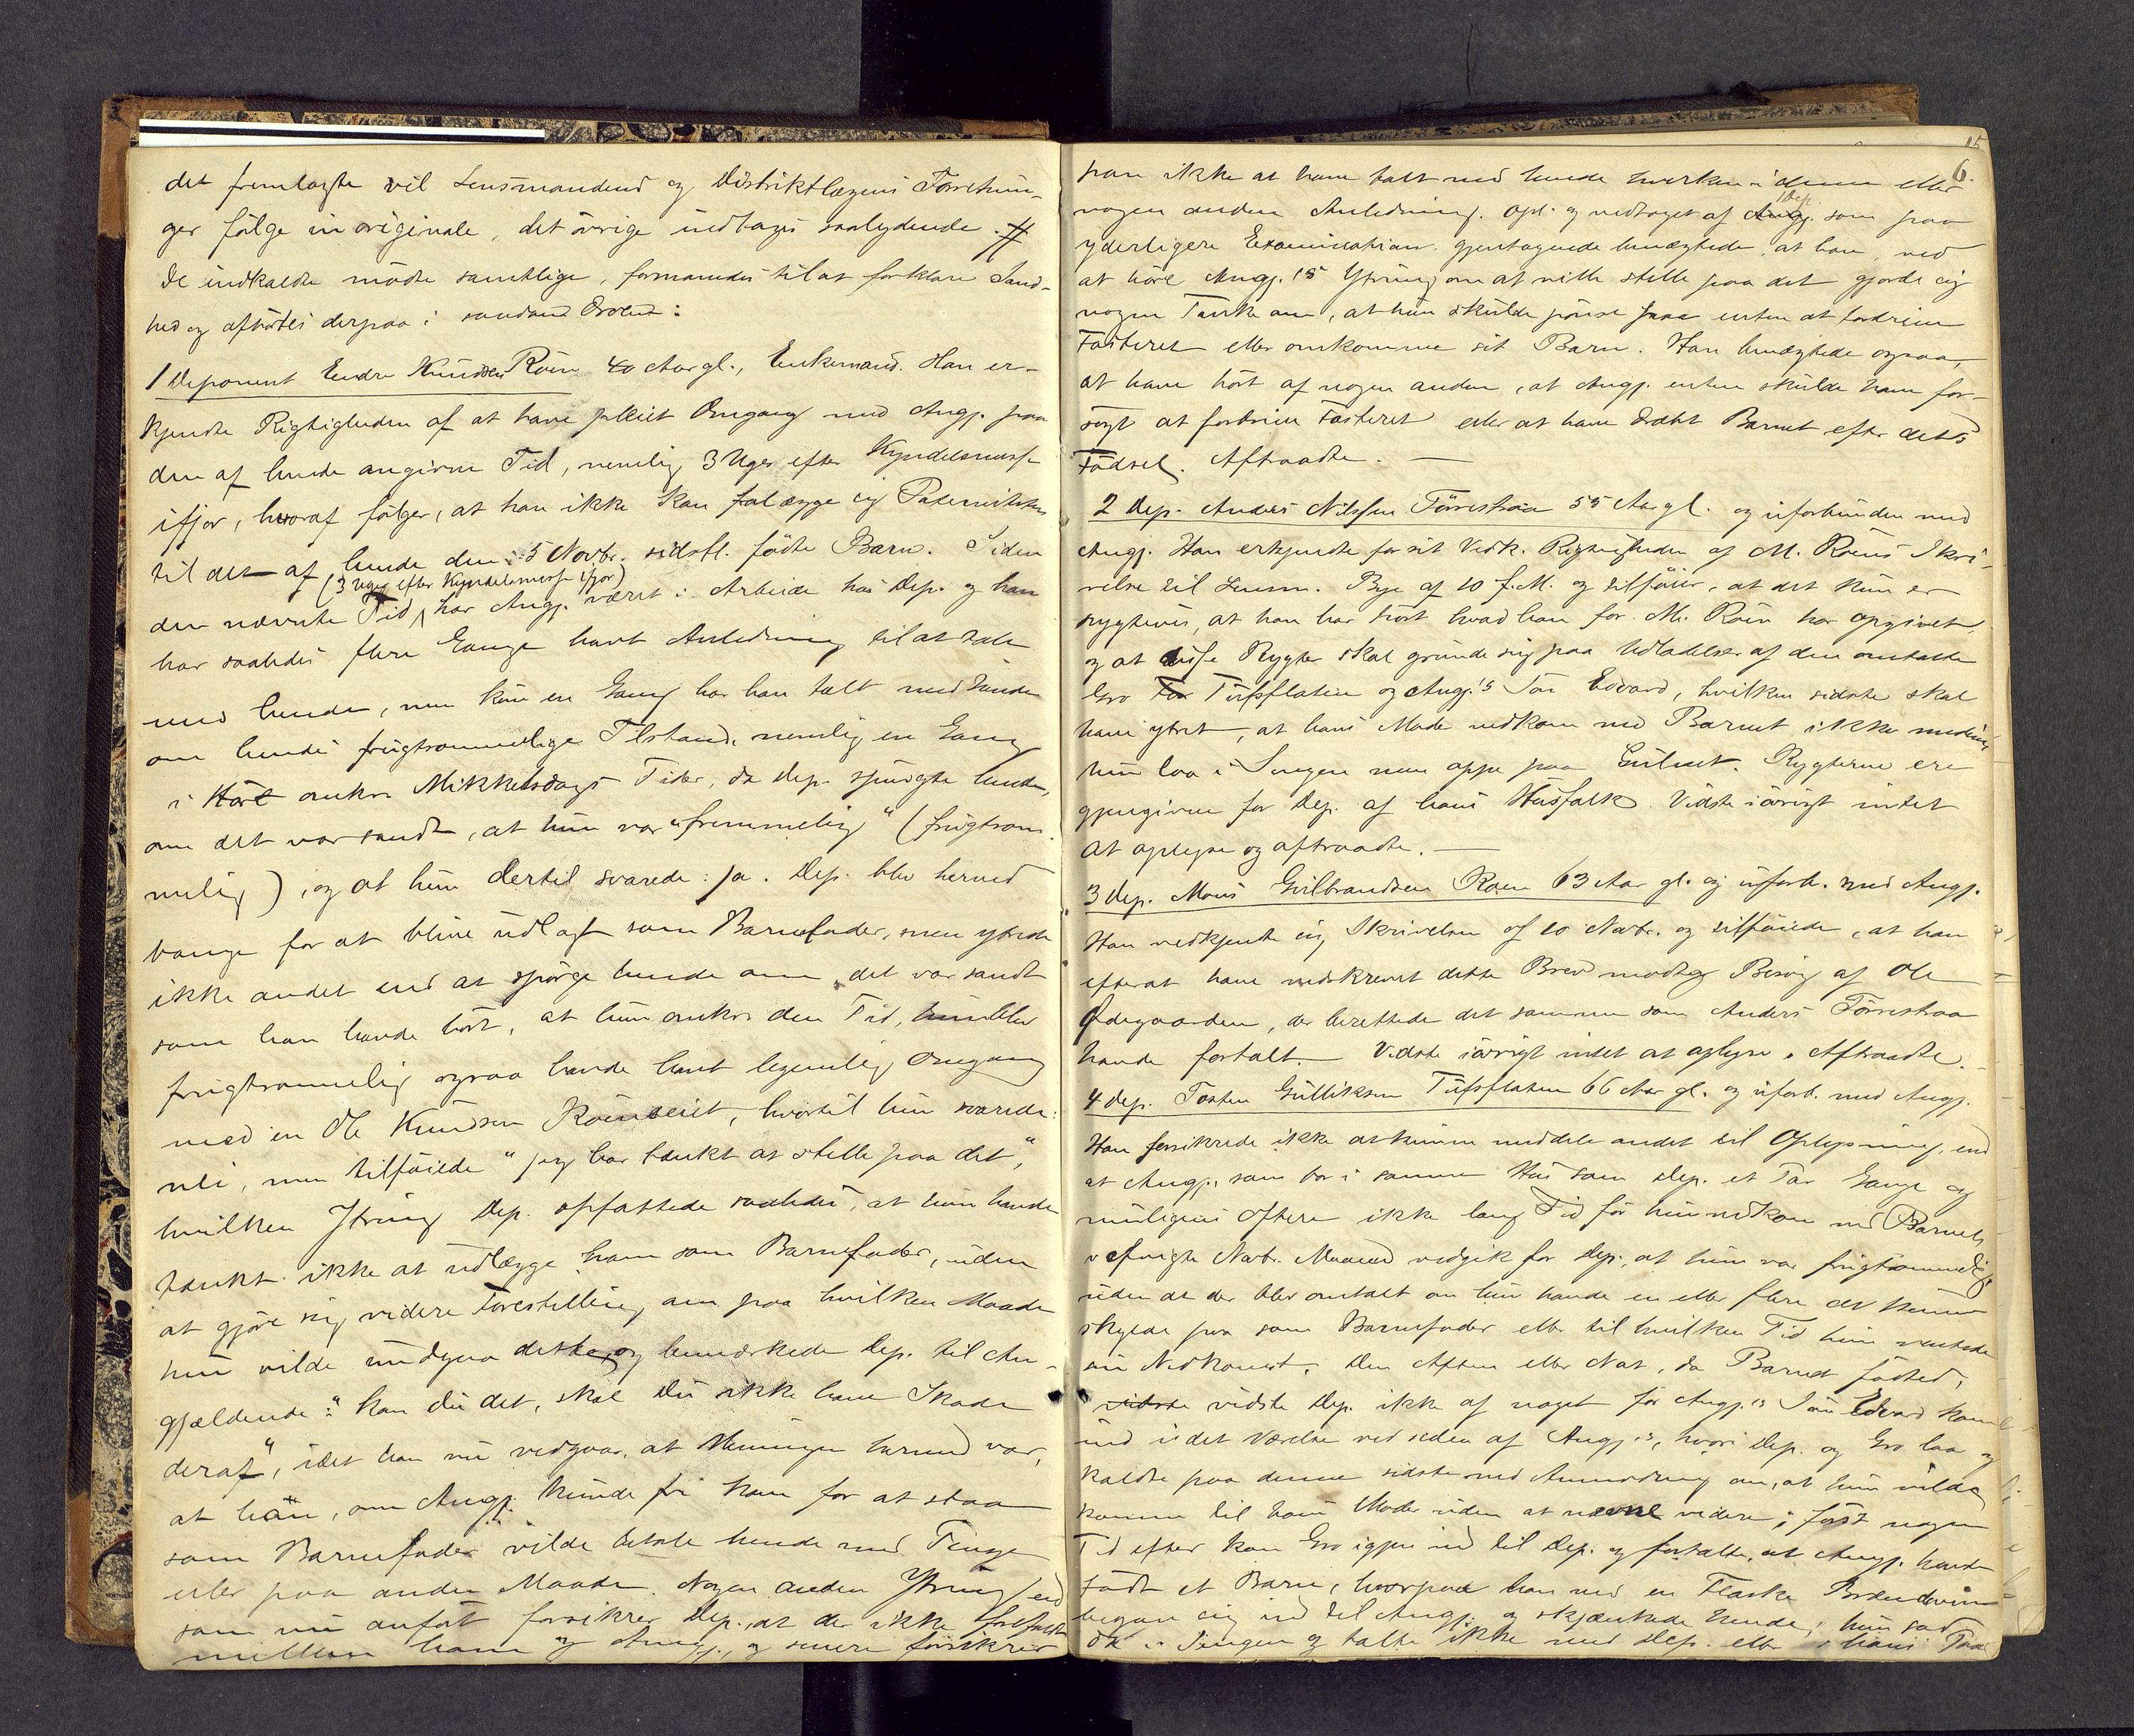 det fremlagte vil Lensmandens og Distriktlægens Forretnin-
ger følge in originale, det øvrige indtages saalydende #
De indkaldte mødte samtlige, formanedes til at forklare Sand-
hed og afhørtes derpaa i saadan Orden:
1 Deponent Endre Knudsen Röin 40 Aar gl., Enkemand. Han er-
kjendte Rigtigheden af at have pleiet Omgang med Angj. paa
den af hende angivne Tid, nemlig 3 Uger efter Kyndelsmesse
ifjor, hvoraf følger, at han ikke kan falægge sig Paterniteten
til det af hende den 5 Novbr. sidstl. fødte Barn. Siden
(3 Uger efter Kyndelsmesse ifjor)
den nævnte Tid har Angj. været i Arbeide hos Dep. og han
har saaledes flere Gange havt Anledning til at tale
med hende, men kun en Gang har han talt med hende
om hendes frugtsommelige Tilstand, nemlig en Gang
i Høst omkr. Mikkelsdags Tider, da Dep. spurgte hende,
om det var sandt, at hun var "fremmelig" (frugtsom-
melig), og at hun dertil svarede: ja. Dep. blev herved
bange for at blive udlagt som Barnefader, men ytrede
ikke andet end at spørge hende om det var sandt
som han havde hørt, at hun omkr. den Tid, hun blev
frugtsommelig ogsaa havde havt legemlig Omgang
med en Ole Knudsen Röinseiet, hvortil hun svarede:
nei, men tilføiede "jeg har tænkt at stelle paa det,"
hvilken Ytring Dep. opfattede saaledes, at hun havde
tænkt ikke at udlægge ham som Barnefader, uden
at gjøre sig videre Forestilling om paa hvilken Maade
hun vilde undgaa dette, og bemærkede Dep. til An-
gjældende: "kan du det, skal Du ikke have Skade
deraf", idet han nu vedgaar, at Meningen hermed var,
at han, om Angj. kunde fri ham for at staa
som Barnefader vilde betale hende med Penge
eller paa anden Maade. Nogen anden Ytring end
som nu anført forsikrer Dep., at der ikke forefaldt
mellem ham og Angj., og senere forsikrer
6.
han ikke at have talt med hende hverken i denne eller
Dep.
nogen anden Anledning. Opl. og vedtaget af Angj. som paa
yderligere Examination gjentagende benægtede, at han, ved
at høre Angj.'s Ytring om at ville stelle paa det gjorde sig
nogen Tanke om, at hun skulde pønse paa enten at fordrive
Fosteret eller omkomme sit Barn. Han benægtede ogsaa,
at have hørt af nogen anden, at Angj. enten skulde have for-
søgt at fordrive Fosteret eller at have dræbt Barnet efter dets
Fødsel. Aftraadte. —
2 Dep. Anders Nilssen Tørrestraa 55 Aar gl. og uforbunden med
Angj. Han erkjendte for sit Vedk. Rigtigheden af M. Röens Skri-
velse til Lensm. Bye af 10 f. M. og tilføier, at det kun er
rygtevis, at han har hørt hvad han for M. Röin har opgivet
og at disse Rygter skal grunde sig paa Udladelser af den omtalte
Gro Tufsflaten og Angj.'s Søn Edvard, hvilken sidste skal
have ytret, at hans Moder nedkom med Barnet ikke medens
hun laa i Sengen men oppe paa Gulvet. Rygterne ere
gjengivne for Dep. af hans Husfolk. Vidste iøvrigt intet
at oplyse og aftraadte. —
3 Dep. Mons Gulbrandsen Roen 63 Aar gl. og uforb. med Angj.
Han vedkjendte sig Skrivelsen af 10 Novbr. og tilføiede, at han
efterat have nedskrevet dette Brev modtog Besøg af Ole
Ødegaarden, der berettede det samme som Anders Tørrestraa
havde fortalt. — Vidste iøvrigt intet at oplyse. Aftraadte. —
4 Dep. Tosten Gulliksen Tufsflaten 66 Aar gl. og uforb. med Angj.
Han forsikrede ikke at kunne meddele andet til Oplysning, end
at Angj., som bor i samme Hus som Dep. et Par Gange og
muligens oftere ikke lang Tid før hun nedkom med Barnet
afvigte Novbr. Maaned vedgik for Dep., at hun var frugtsommelig
uden at der blev omtalt om hun havde en eller flere at kunne
skylde paa som Barnefader eller til hvilken Tid hun ventede
sin Nedkomst. Den Aften eller Nat, da Barnet fødtes,
vidste vidste Dep. ikke af noget før Angj.'s Søn Edvard kom
ind i det Værelse ved siden af Angj.'s, hvori Dep. og Gro laa og
kaldte paa denne sidste med Anmodning om, at hun vilde
komme til hans Moder uden at nævne videre; først nogen
Tid efter kom Gro igjen ind til Dep. og fortalte, at Angj. havde
født et Barn, hvorpaa han med en Flaske Brændeviin
begav sig ind til Angj. og skjænkede hende; hun sad
da i Sengen og talte ikke med Dep. eller i hans Paa